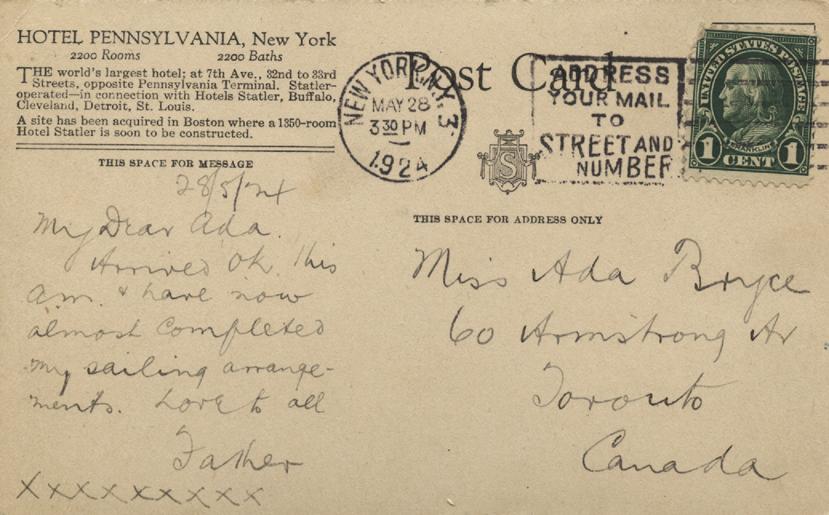 HOTEL PENNSYLVANIA, New York
2200 Rooms 2200 Baths
THE world's largest hotel; at 7th Ave., 32nd to 33rd
Streets, opposite Pennsylvania Terminal. Statler-
operated—in connection with Hotels Statler, Buffalo,
Cleveland, Detroit, St. Louis.
A site has been acquired in Boston where a 1350-room
Hotel Statler is soon to be constructed.
THIS SPACE FOR MESSAGE
28/5/24
My Dear Ada.
Arrived Ok. this
a.m. & have now
almost completed
my sailing arrange-
ments. Love to all
Father
XXXXXXXXX
Post Card
NEW YORK, N.Y. 3
MAY 28
3 30 PM
1924
ADDRESS
YOUR MAIL
TO
STREET AND
NUMBER
UNITED STATES POSTAGE
FRANKLIN
1 CENT 1
S
THIS SPACE FOR ADDRESS ONLY
Miss Ada Bryce
60 Armstrong Av
Toronto
Canada